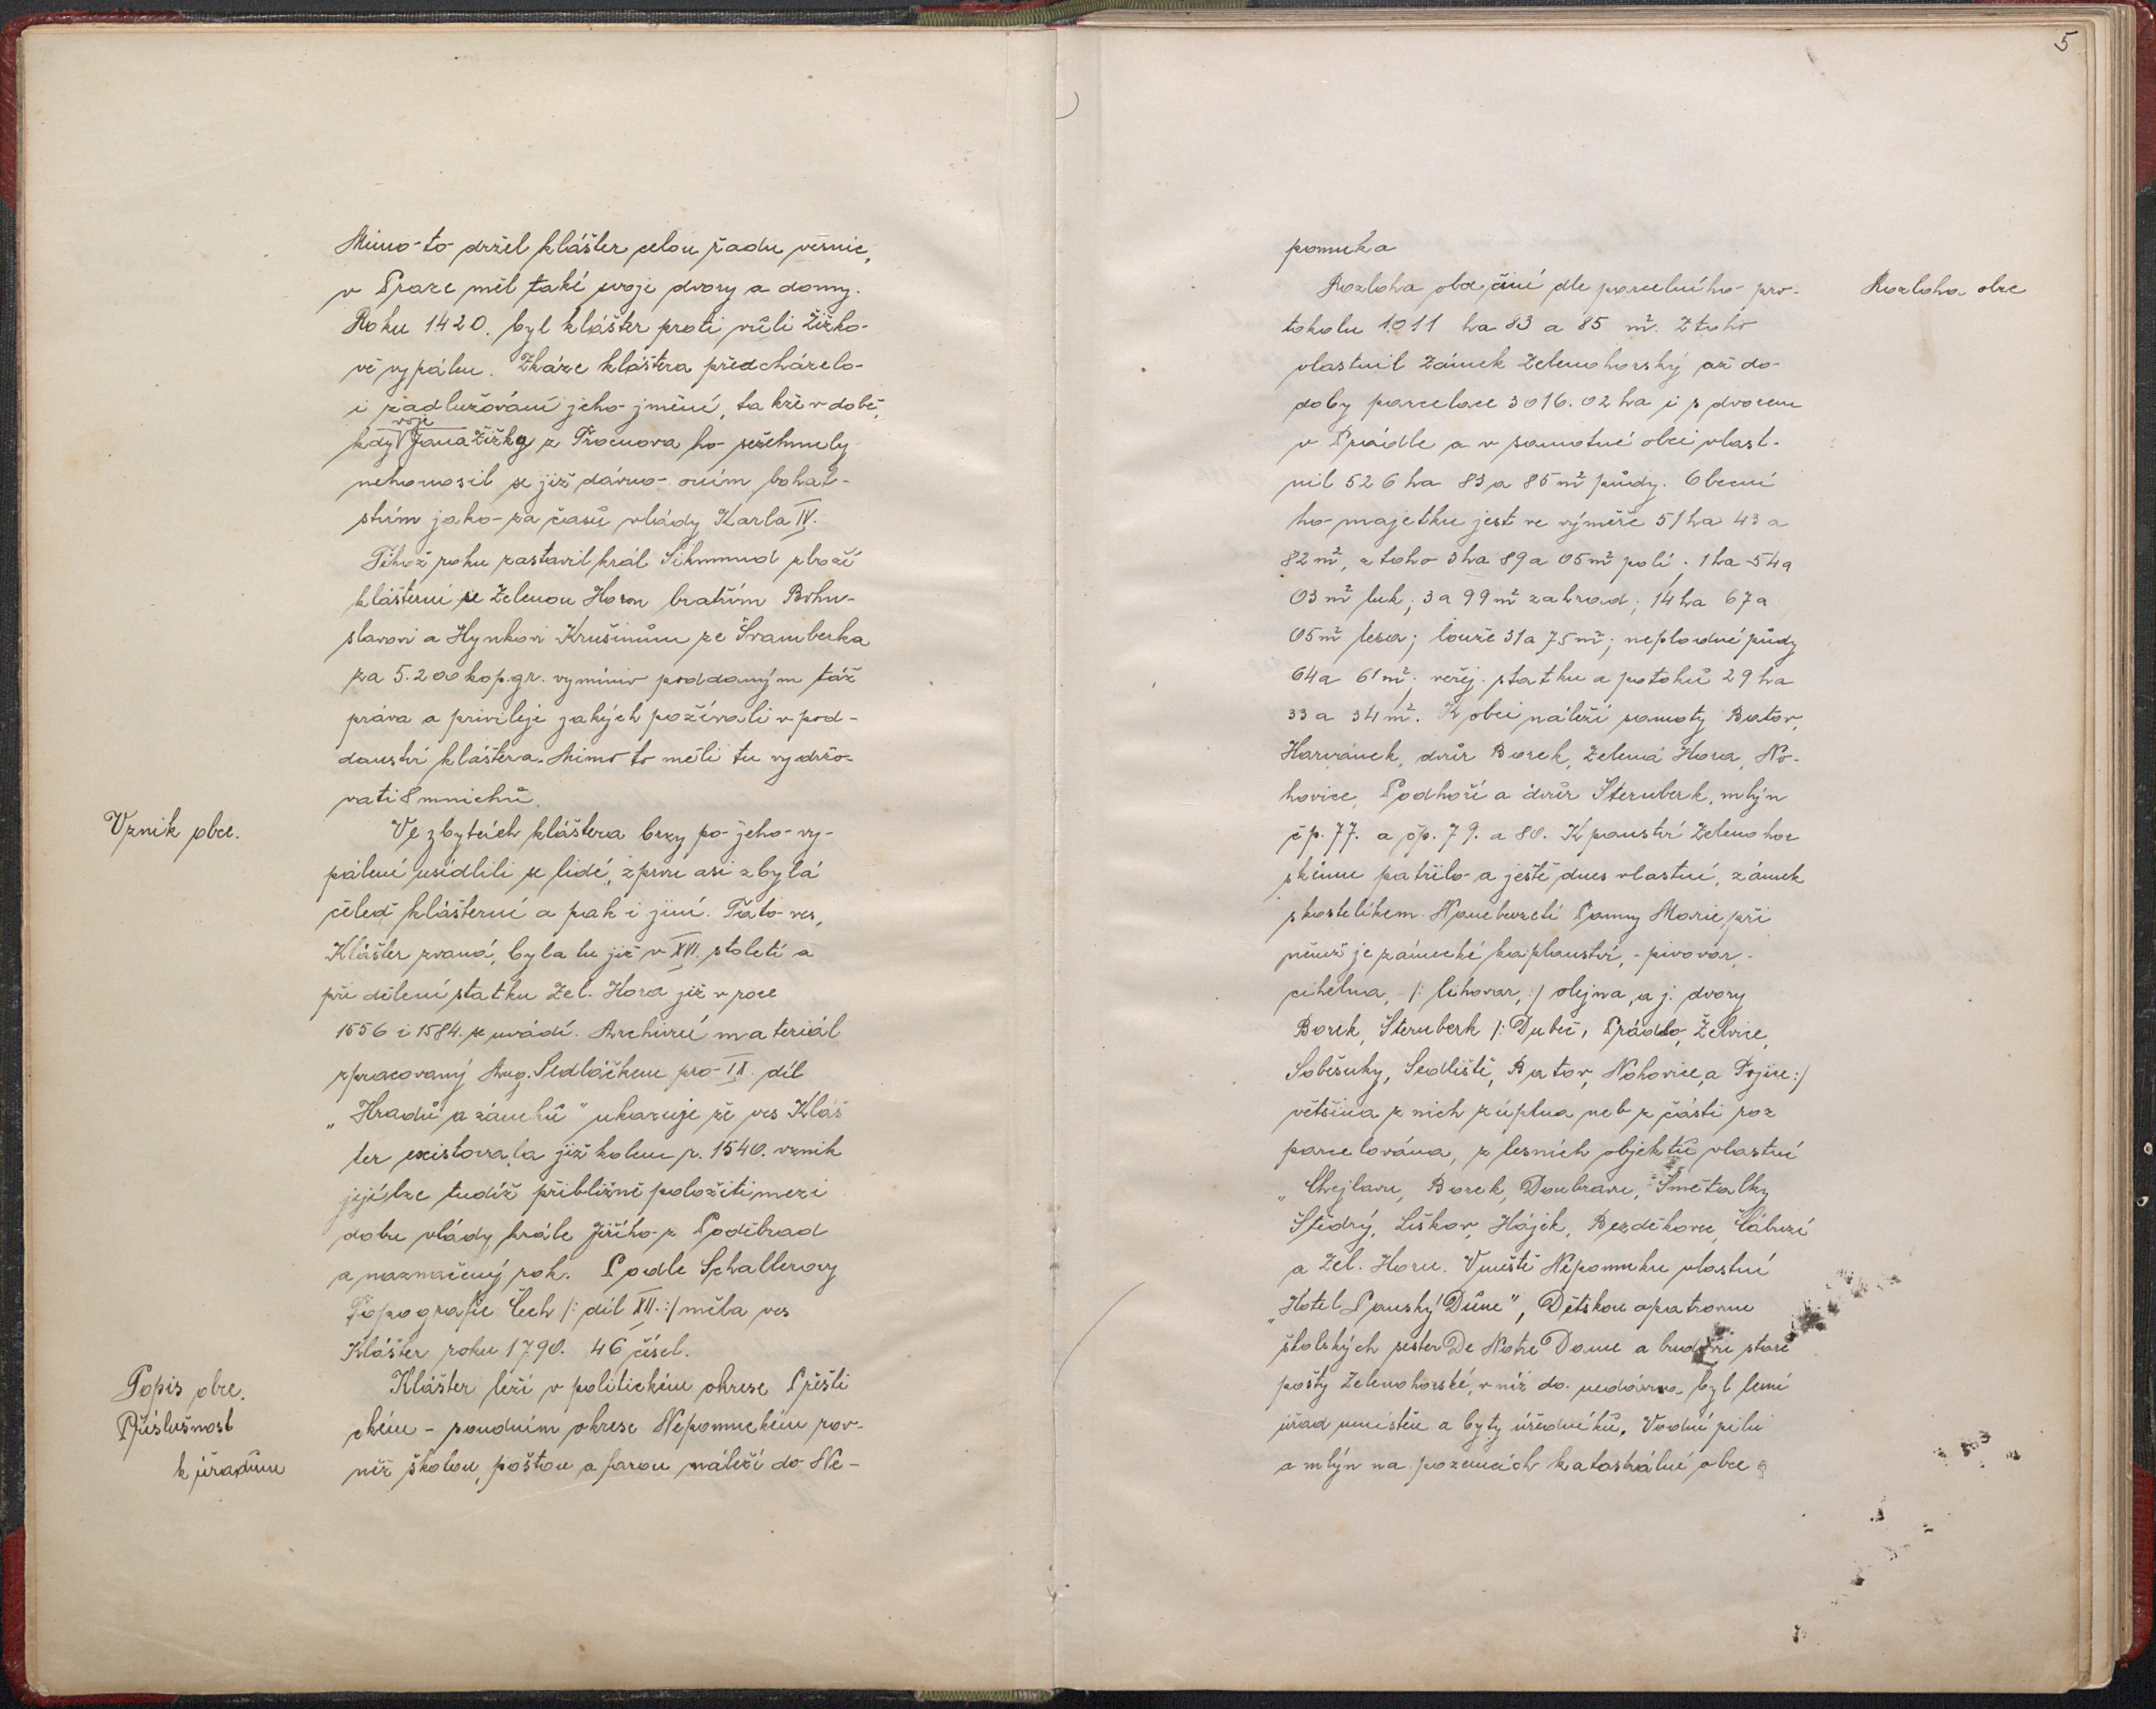 Mimo-to držel klášter celou řadu vesnic,
v Praze měl také svoje dvory a domy.
Roku 1420. byl klášter proti vůli Žižko-
vě vypálen. Zkáze kláštera předcházelo-
i zadlužování jeho jmění, takže v době,
voje
kdy Jana Žižky z Trocnova ho sežehnuly
nehonosil se již dávno-oním bohat-
stvím jako-za časů vlády Karla IV.
Téhož roku zastavil král Sikmund zboží
klášterní se Zelenou Horou bratřím Bohu-
slavovi a Hynkovi Krušinům ze Švamberka
za 5.200 kop.gr. vymíniv poddaným táž
práva a privileje jakých požívali v pod-
danství kláštera. Mimo to měli tu vydržo-
vati 8 mnichů.
Vznik obce.
Ve zbytcích kláštera brzy po-jeho-vy-
pálení usídlili se lidé, zprvu asi zbylá
čeleď klášterní a pak i jiní. Tato-ves,
Klášter zvaná, byla tu již v XVI. století a
při dělení statku Zel. Hora již v roce
1556 i 1584. se uvádí. Archivní materiál
zpracovaný Aug. Sedláčkem pro-IX. díl
„Hradů a zámků" ukazuje že ves Kláš
ter existovala již kolem r. 1540. vznik
její lze tudíž přibližně položiti mezi
dobu vlády krále Jiřího-z Poděbrad
a naznačený rok. Podle Schallerovy
Topografie Čech /: díl XII. :/ měla ves
Klášter roku 1790. 46 čísel.
Popis obce.
Příslušnost
k úřadům
Klášter leží v politickém okrese Přešti
ckém - soudním okrese Nepomuckém rov-
něž školou, poštou a farou náleží do-Ne-
5
pomuka
Rozloha obce
Rozloha obce činí dle parcelního-pro-
tokolu 1011 ha 83 a 85 m². Z toho
vlastnil Zámek Zelenohorský až do-
doby parcelace 3016.02 ha i s dvorem
v Prádle a v samotné obci vlast-
nil 526 ha 83 a 85 m² půdy. Obecní
ho-majetku jest ve výměře 51 ha 43 a
82 m², z toho 3 ha 89 a 05 m² polí; 1 ha 54 a
03 m² luk; 3 a 99 m² zahrad; 14 ha 67 a
05 m² lesa; louže 31 a 75 m²; neplodné půdy
64 a 61 m²; veřej. statku a potoků 29 ha
33 a 34 m². K obci náleží samoty Bator,
Harvánek, dvůr Borek, Zelená Hora, No-
hovice, Podhoří a dvůr Šternberk, mlýn
čp. 77. a čp. 79. a 80. K panství Zelenohor
skému patřilo-a ještě dnes vlastní, zámek
s kostelíkem. Nanebevzetí Panny Marie, při
němž je zámecké kaplanství, - pivovar, -
cihelna, - /: lihovar, :/ olejna, a j. dvory
Borek, Šternberk /: Dubeč, Prádlo, Želvice,
Soběsuky, Sedliště, Bator, Nohovice, a Trojice :/
většina z nich z úplna neb z části roz
parcelována, z lesních objektů vlastní
„Chejlavu, Borek, Doubravu, Smetálky
Štědrý, Liškov, Hájek, Bezděkovec, Čábuzí
a Zel. Horu. V městě Nepomuku vlastní
„Hotel Panský Dům", Dětskou opatrovnu
školských sester De Notre Dame a budovu staré
pošty Zelenohorské, v níž do-nedávna byl lesní
úřad umístěn a byty úředníků. Vodní pilu
a mlýn na pozemcích katastrální obce